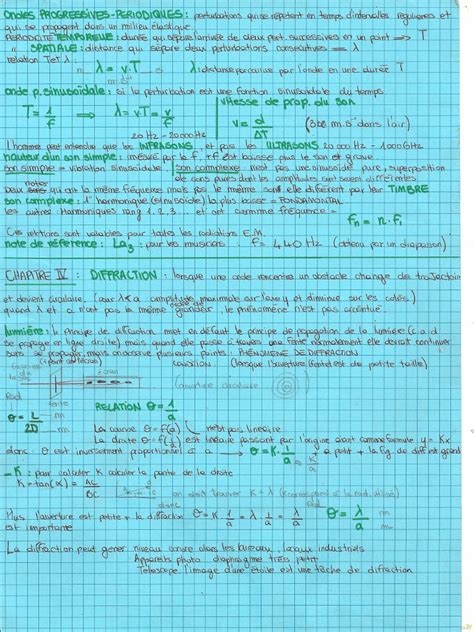 ondes PROGRESSIVES-PERIODIQUES : perturbations qui se répètent en temps d'intervalles réguliers et
qui se propagent dans un milieu élastique.
PERIODICITE TEMPORELLE : durée qui sépare l'arrivée de deux pert successives en un point → T
" SPATIALE : distance qui sépare deux perturbations consécutives = λ
relation T et λ : λ = v.T λ : distance parcourue par l'onde en une durée T
onde p. sinusoïdale : si la perturbation est une fonction sinusoïdale du temps
T = 1/f ⇒ λ = v.T = v/f
vitesse de prop. du son
v = d/ΔT (320 m.s⁻¹ dans l'air)
20 Hz - 20000 Hz
L'homme peut entendre que les INFRASONS et pas les ULTRASONS 20 000 Hz - 100 GHz
hauteur d'un son simple : mesuré par la f. + f est basse plus le son est grave
son simple = vibration sinusoïdale son complexe n'est pas une sinusoïdale pure, superposition
de sons purs dont les amplitudes sont différentes
Deux notes qui ont la même fréquence mais pas le même son elle diffèrent par leur TIMBRE
son complexe : 1° harmonique (sinusoïde) la plus basse = FONDAMENTAL
les autres : harmoniques rang 1, 2, 3 ... et ont comme fréquence = fn = n.f1
Ces relations sont valables pour toutes les radiations E.M.
note de référence : La3 : pour les musiciens : f = 440 Hz (obtenu par un diapason)
CHAPITRE IV : DIFFRACTION : lorsque une onde rencontre un obstacle change de trajectoire
et devient circulaire. (car λ≤a amplitude maximale sur l'axe y et diminue sur les côtés)
quand λ et a n'ont pas le même ordre de grandeur, le phénomène n'est pas accentué.
lumière : le phnope de diffraction met en défaut le principe de propagation de la lumière (c a d
se propage en ligne droite) mais quand elle passe à travers une fente normalement elle devrait continuer
sans se propager mais on observe plusieurs points : PHENOMENE DE DIFFRACTION
CONDITION (lorsque l'ouverture (fente) est de petite taille)
écran
ouverture circulaire
Rad
θ = L/2D m m
RELATION θ = 1/a
La courbe θ = f(a) n'est pas linéaire
La droite θ = f(1/a) est linéaire passant par l'origine ayant comme formule y = Kx
donc θ est inversement proportionnel à a → θ = K.1/a a petit + la fig de diff est grand
- K : pour calculer K calculer la pente de la droite
K = tan(α) = AC/BC
on doit trouver K = λ (correspond à la rad. utilisé)
donc Rad
Plus l'ouverture est petite + la diffraction θ = K 1/a = λ 1/a = λ/a θ = λ/a m m
est importante
La diffraction peut gêner niveau sonore dans les bureaux, locaux industriels
Appareils photo diaphragme très petit
Telescope l'image d'une étoile est une tâche de diffraction